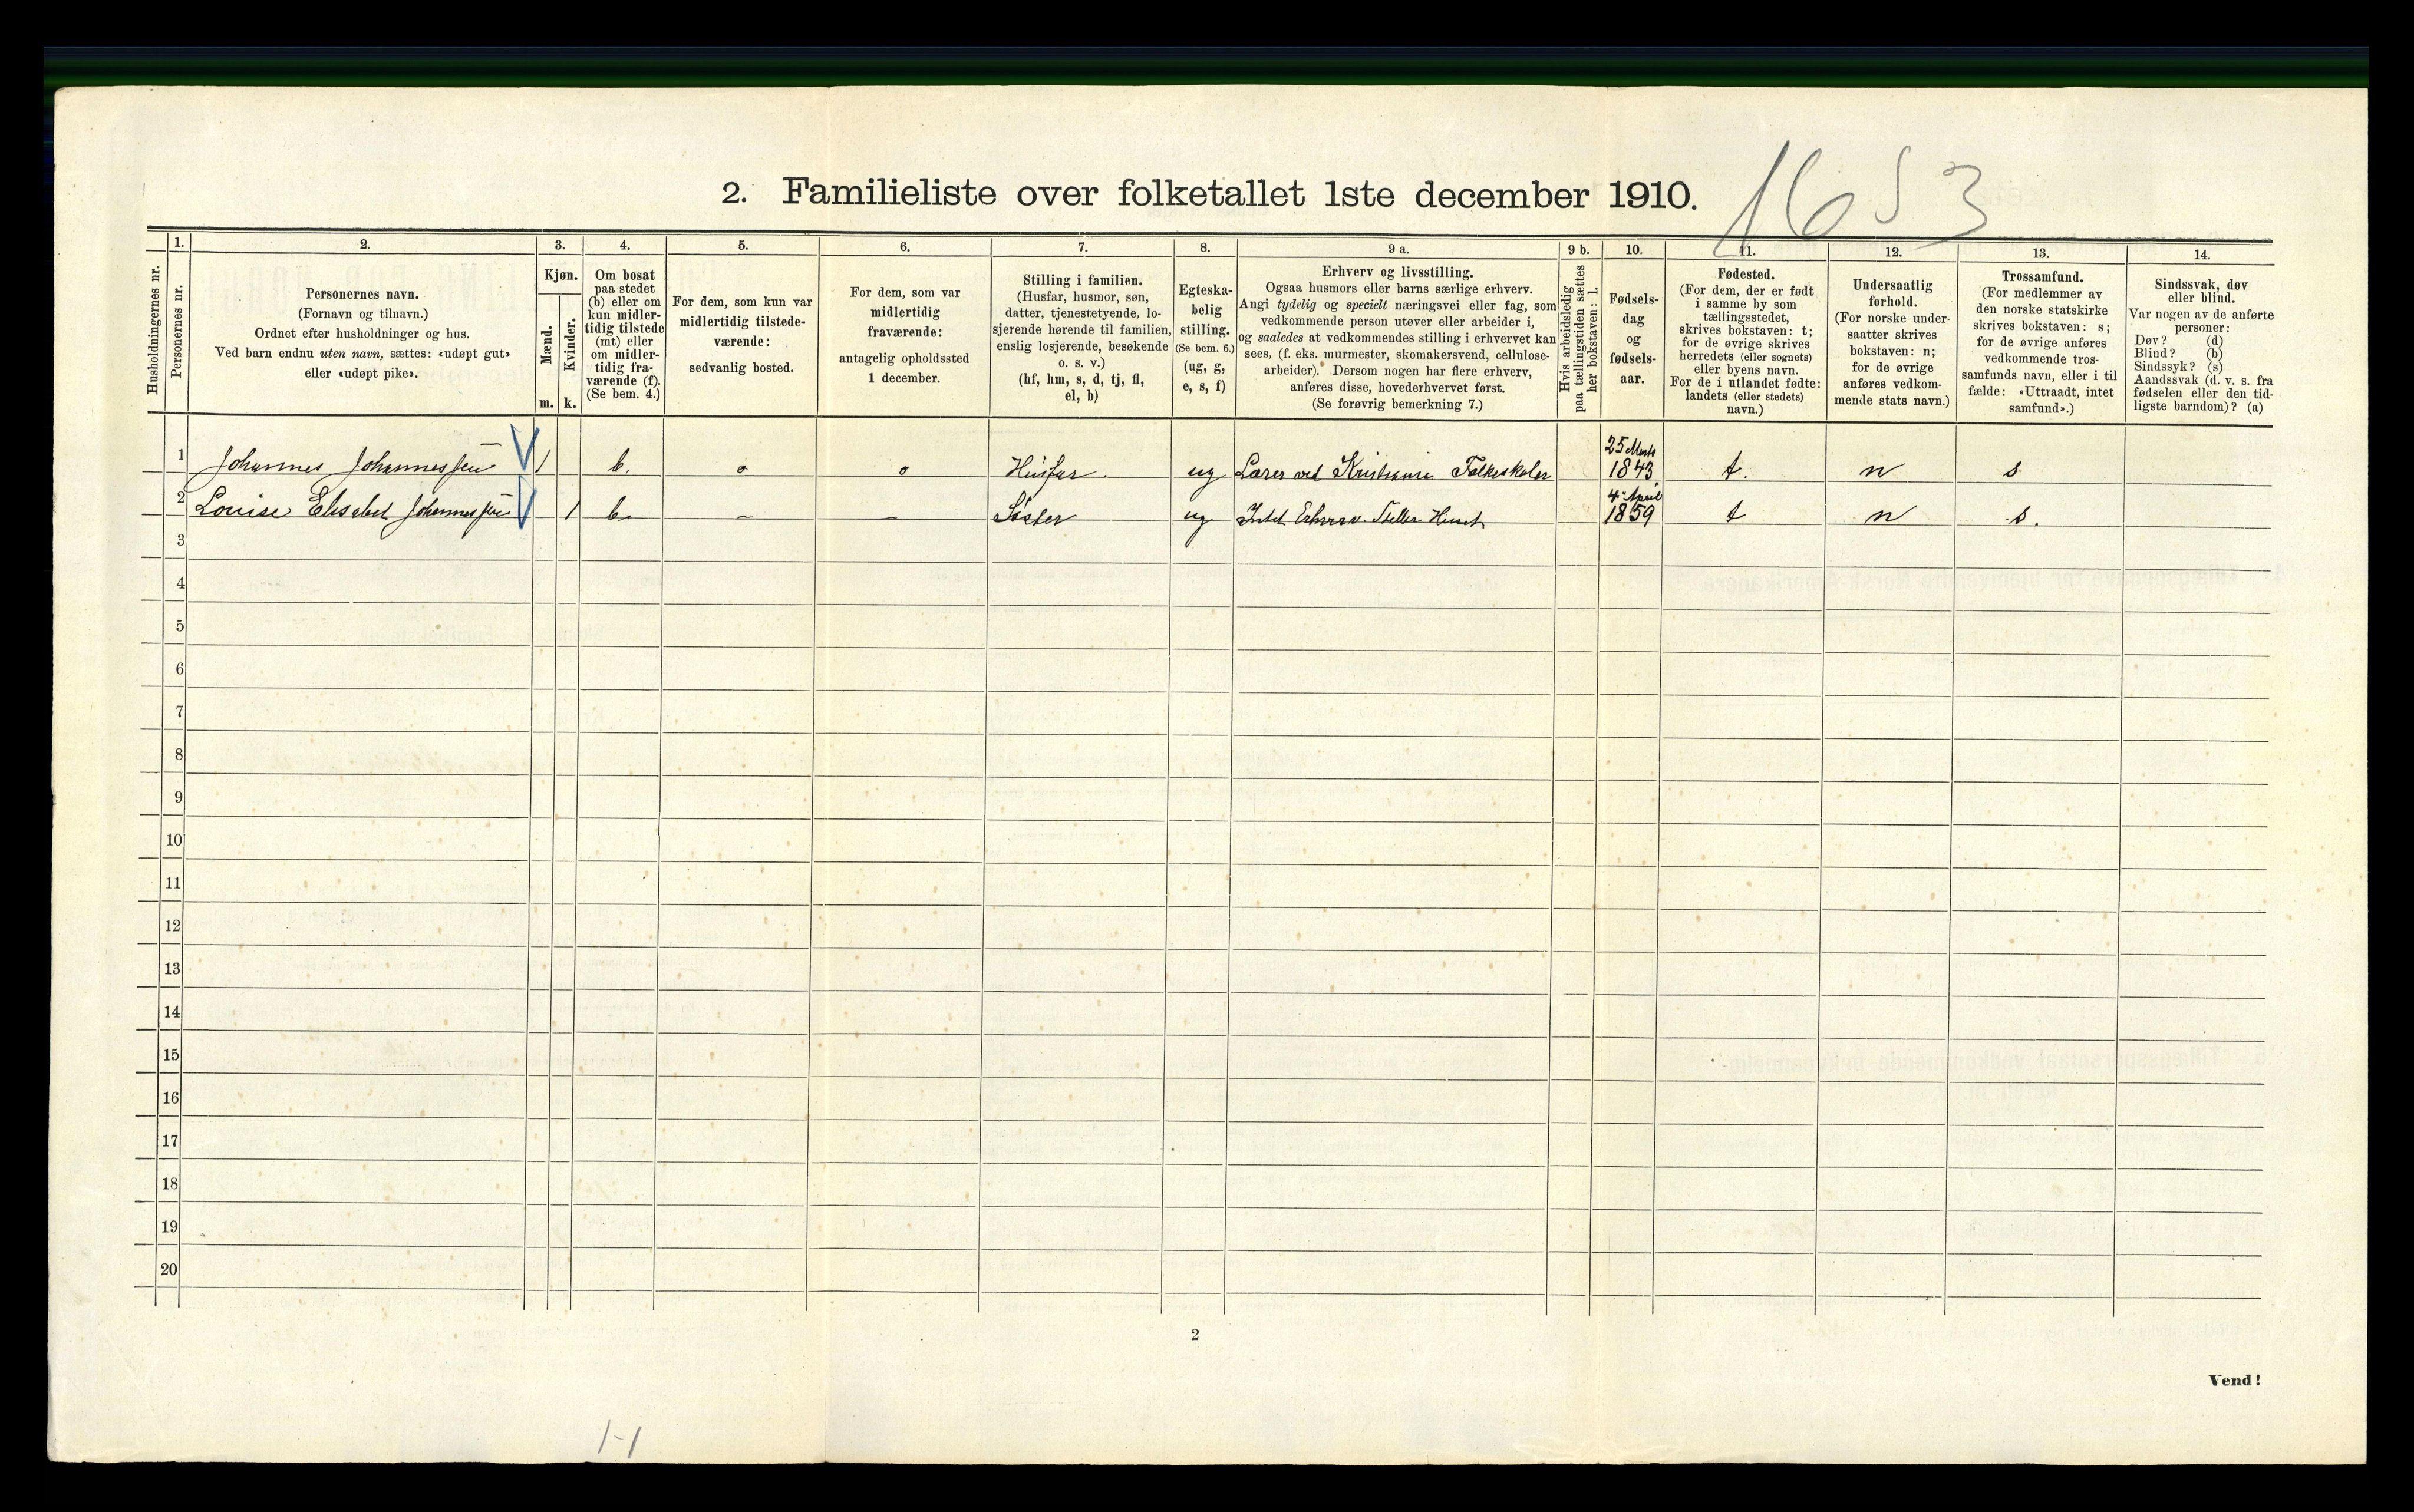 1653
2. Familieliste over folketallet 1ste december 1910.
Husholdningernes nr.
1.
Personernes nr.
2.
Personernes navn.
(Fornavn og tilnavn.)
Ordnet efter husholdninger og hus.
Ved barn endnu uten navn, sættes: «udøpt gut»
eller «udøpt pike».
3.
Kjøn.
Mænd.
Kvinder.
m. k.
4.
Om bosat
paa stedet
(b) eller om
kun midler-
tidig tilstede
(mt) eller
om midler-
tidig fra-
værende (f).
(Se bem. 4.)
5.
For dem, som kun var
midlertidig tilstede-
værende:
sedvanlig bosted.
6.
For dem, som var
midlertidig
fraværende:
antagelig opholdssted
1 december.
7.
Stilling i familien.
(Husfar, husmor, søn,
datter, tjenestetyende, lo-
sjerende hørende til familien,
enslig losjerende, besøkende
o. s. v.)
(hf, hm, s, d, tj, fl,
el, b)
8.
Egteska-
belig
stilling.
(Se bem. 6.)
(ug, g,
e, s, f)
9 a.
Erhverv og livsstilling.
Ogsaa husmors eller barns særlige erhverv.
Angi tydelig og specielt næringsvei eller fag, som
vedkommende person utøver eller arbeider i,
og saaledes at vedkommendes stilling i erhvervet kan
sees, (f. eks. murmester, skomakersvend, cellulose-
arbeider). Dersom nogen har flere erhverv,
anføres disse, hovederhvervet først.
(Se forøvrig bemerkning 7.)
9 b.
Hvis arbeidsledig
paa tællingstiden sættes
her bokstaven: l.
10.
Fødsels-
dag
og
fødsels-
aar.
11.
Fødested.
(For dem, der er født
i samme by som
tællingsstedet,
skrives bokstaven: t;
for de øvrige skrives
herredets (eller sognets)
eller byens navn.
For de i utlandet fødte:
landets (eller stedets)
navn.)
12.
Undersaatlig
forhold.
(For norske under-
saatter skrives
bokstaven: n;
for de øvrige
anføres vedkom-
mende stats navn.)
13.
Trossamfund.
(For medlemmer av
den norske statskirke
skrives bokstaven: s;
for de øvrige anføres
vedkommende tros-
samfunds navn, eller i til
fælde: «Uttraadt, intet
samfund».)
14.
Sindssvak, døv
eller blind.
Var nogen av de anførte
personer:
Døv? (d)
Blind? (b)
Sindssyk? (s)
Aandssvak (d. v. s. fra
fødselen eller den tid-
ligste barndom)? (a)
1 Johannes Johannessen 1 b. o o Husfar. ug Lærer ved Kristiania Folkeskoler 25 Marts 1843 t. n s
2 Louise Elisabet Johannessen 1 b. – – Søster ug Intet Erhverv. Steller Huset 4 April 1859 t n s.
3
4
5
6
7
8
9
10
11
12
13
14
15
16
17
18
19
20
2
Vend!
1-1